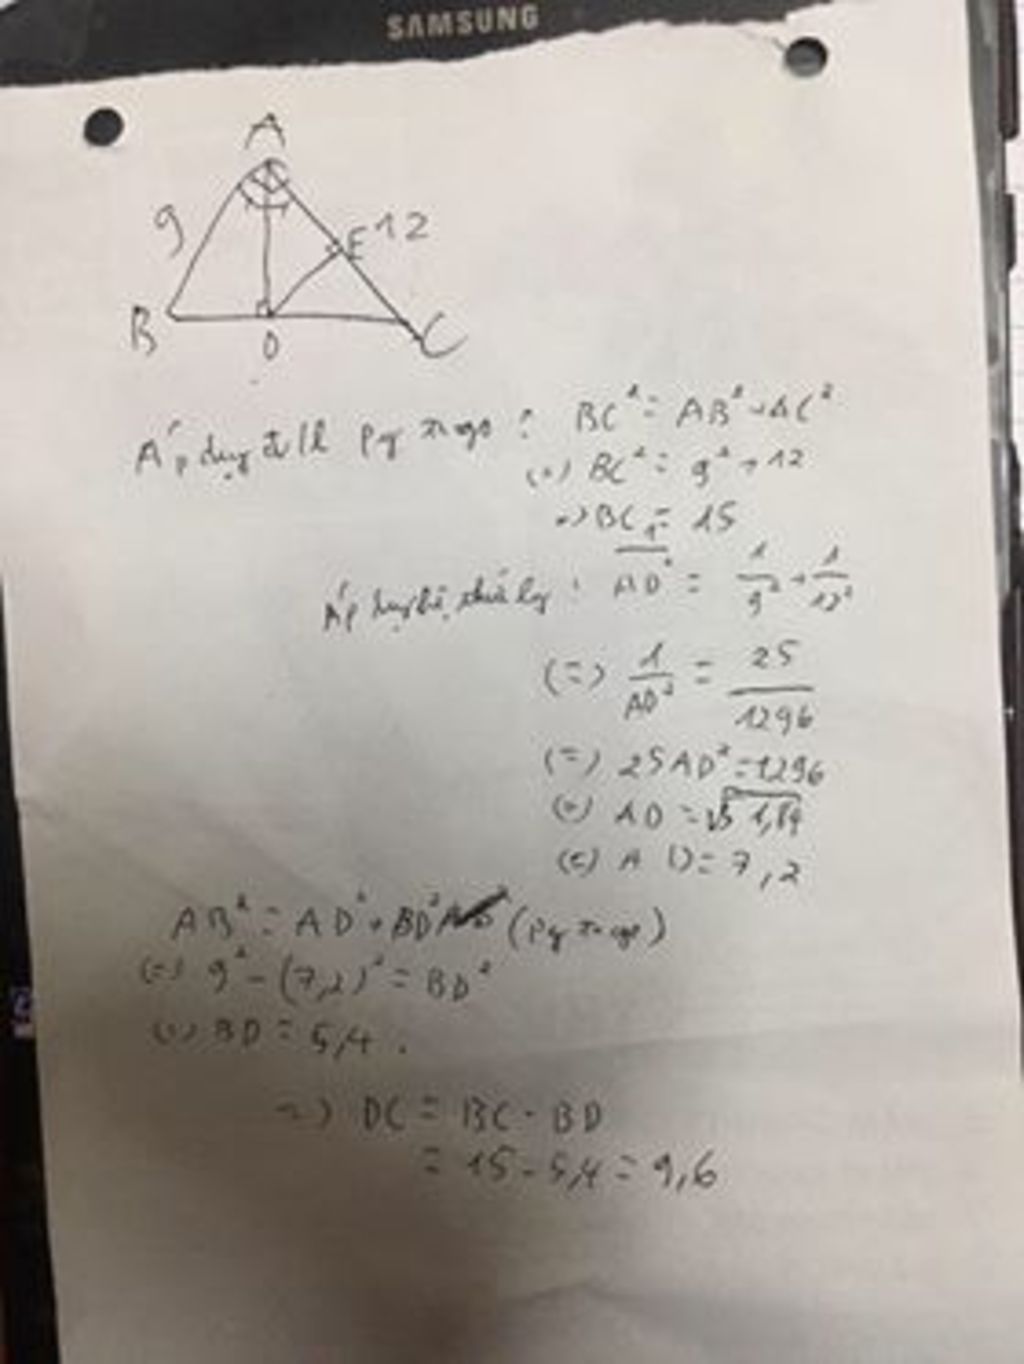 SAMSUNG
A
9
E 12
B
D
C
Áp dụng đ/l Pytago : BC² = AB² + AC²
(=) BC² = 9² + 12
=> BC = 15
Áp dụng hệ thức lg : 1/AD² = 1/9² + 1/12²
(=) 1/AD² = 25/1296
(=) 25AD² = 1296
(=) AD =
(=) AD = 7,2
AB² = AD² + BD² (Pytago)
(=) 9² - (7,2)² = BD²
(=) BD = 5,4 .
=> DC = BC - BD
= 15 - 5,4 = 9,6